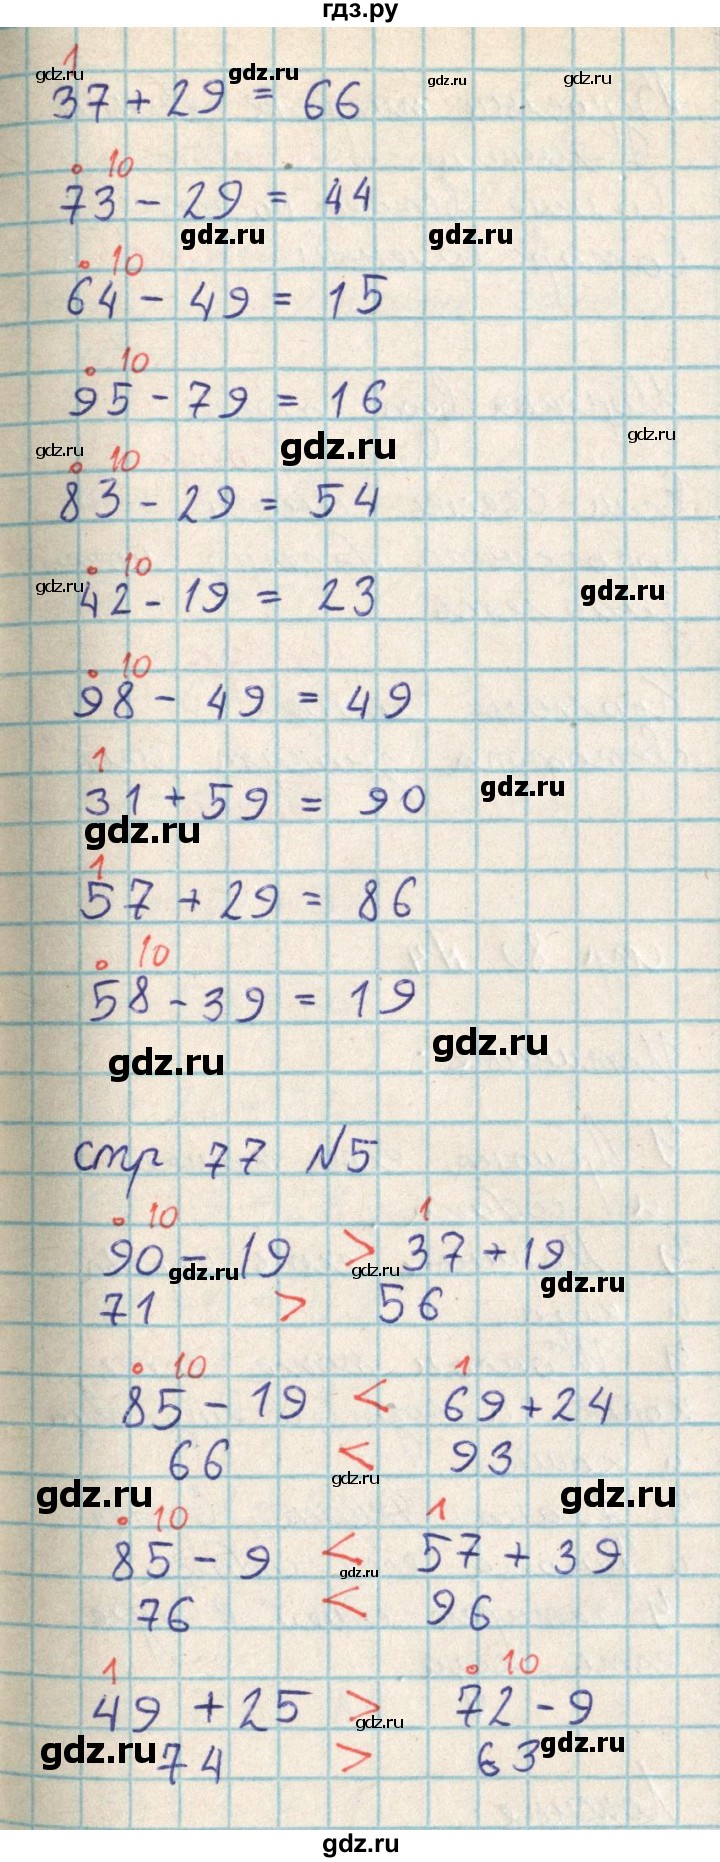 гдз.ру
1
gdz.ru gdz.ru gdz.ru gdz.ru
37 + 29 = 66
• 10
73 - 29 = 44
gdz.ru gdz.ru
• 10
64 - 49 = 15
• 10
95 - 79 = 16
gdz.ru gdz.ru gdz.ru
• 10
83 - 29 = 54
• 10
gdz.ru gdz.ru
42 - 19 = 23
• 10
98 - 49 = 49
1
gdz.ru
31 + 59 = 90
gdz.ru
1
57 + 29 = 86
• 10
58 - 39 = 19
gdz.ru gdz.ru
стр 77 №5
• 10 1
90 - 19 > 37 + 19
gdz.ru gdz.ru gdz.ru
71 > 56
• 10 1
85 - 19 < 69 + 24
66 < 93
gdz.ru gdz.ru gdz.ru
• 10 1
85 - 9 < 57 + 39
gdz.ru
76 < 96
1 • 10
49 + 25 > 72 - 9
gdz.ru gdz.ru gdz.ru
74 > 63
gdz.ru